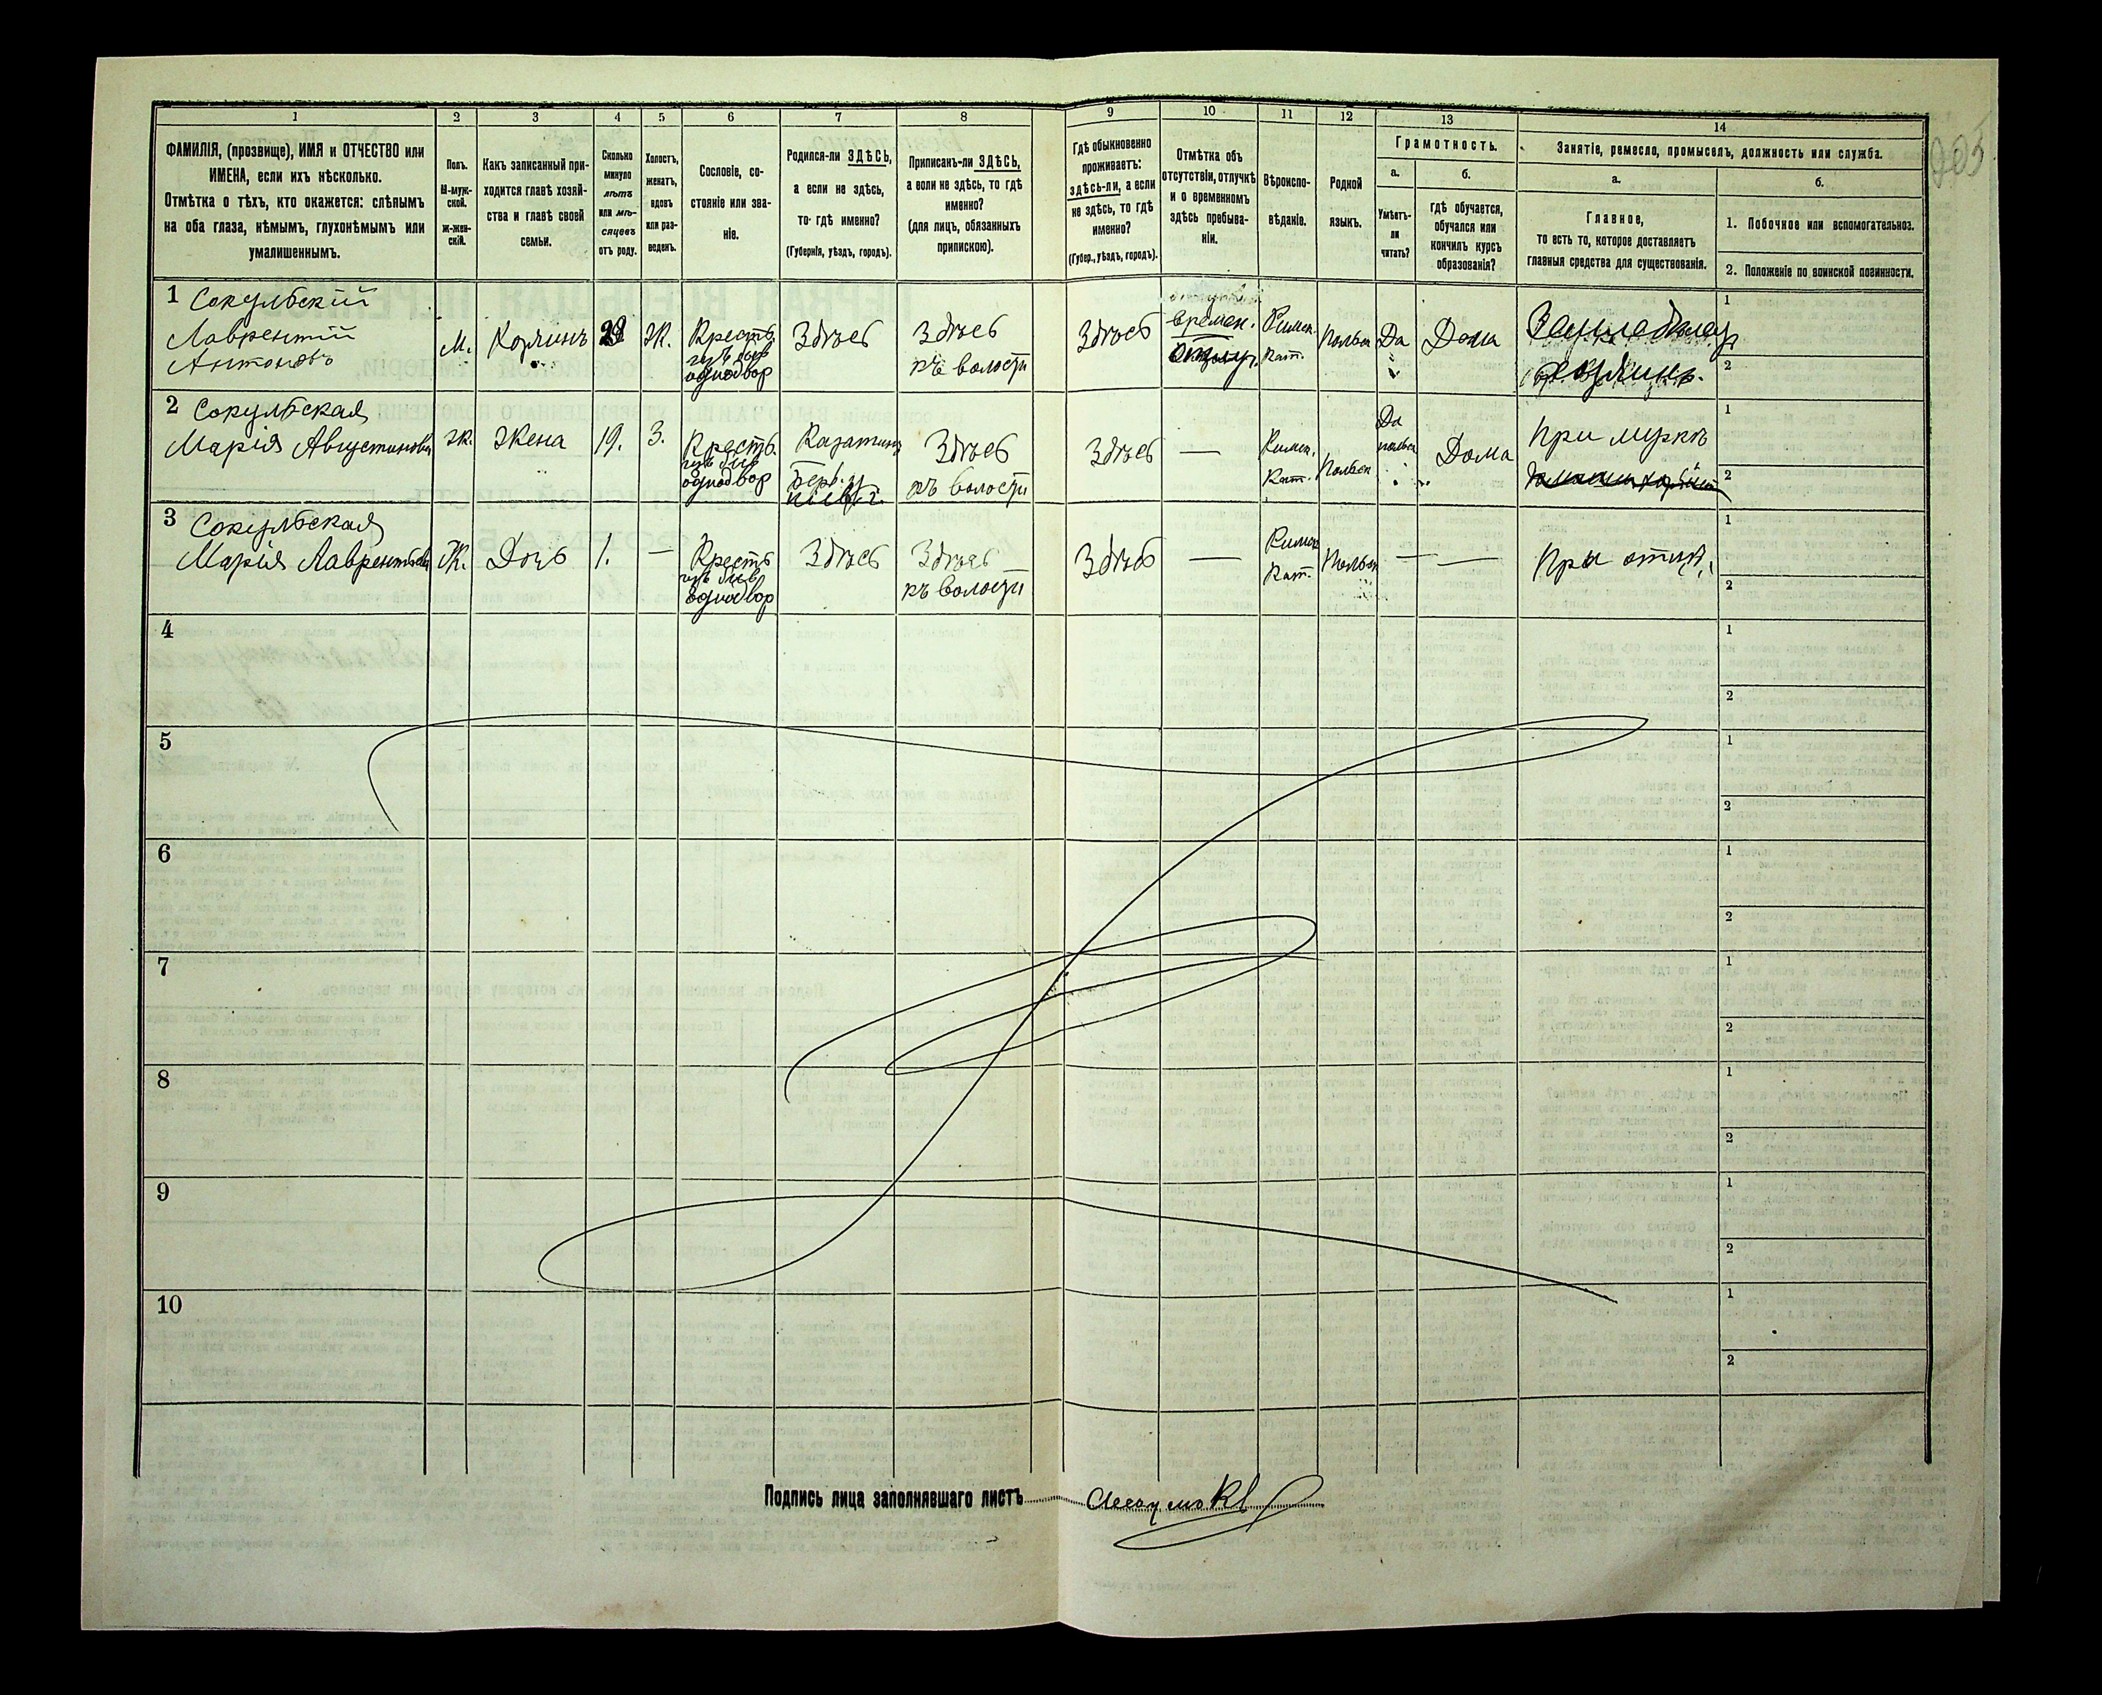 1
2
3
4
5
6
7
8
9
10
11
12
13
14
ФАМИЛІЯ, (прозвище), ИМЯ и ОТЧЕСТВО или
ИМЕНА, если ихъ нѣсколько.
Отмѣтка о тѣхъ, кто окажется: слѣпымъ
на оба глаза, нѣмымъ, глухонѣмымъ или
умалишеннымъ.
Полъ.
М-муж-
ской.
ж-жен-
скій.
Какъ записанный при-
ходится главѣ хозяй-
ства и главѣ своей
семьи.
Сколько
минуло
лѣтъ
или мѣ-
сяцевъ
отъ роду.
Холостъ,
женатъ,
вдовъ
или раз-
веденъ.
Сословіе, со-
стояніе или зва-
ніе.
Родился-ли ЗДѢСЬ,
а если не здѣсь,
то гдѣ именно?
(Губернія, уѣздъ, городъ).
Приписанъ-ли ЗДѢСЬ,
а если не здѣсь, то гдѣ
именно?
(для лицъ, обязанныхъ
припискою).
Гдѣ обыкновенно
проживаетъ:
здѣсь-ли, а если
не здѣсь, то гдѣ
именно?
(Губер., уѣздъ, городъ).
Отмѣтка объ
отсутствіи, отлучкѣ
и о временномъ
здѣсь пребыва-
ніи.
Вѣроиспо-
вѣданіе.
Родной
языкъ.
Грамотность.
а.
Умѣетъ-
ли
читать?
б.
гдѣ обучается,
обучался или
кончилъ курсъ
образованія?
Занятіе, ремесло, промыселъ, должность или служба.
а.
Главное,
то есть то, которое доставляетъ
главныя средства для существованія.
б.
1. Побочное или вспомогательное.
2. Положеніе по воинской повинности.
1 Сокульскій
Лаврентій
Антоновъ
М.
Хозяинъ
Ж.
Крестъ.
изъ быв
однодвор
Здѣсь
Здѣсь
къ волости
Здѣсь
времен.
Римск.
Кат.
Польск
Да
Дома
1
2
2 Сокульская
Марія Августинова
Ж.
Жена
19.
З.
Крестъ.
изъ быв
однодвор
Казатинъ
Берд. у
Кіевс. г.
Здѣсь
къ волости
Здѣсь
—
Римск.
Кат.
Польск
Да
польск
Дома
При мужѣ
1
2
3 Сокульская
Марія Лаврентьева
Ж.
Дочь
1.
—
Крестъ
изъ быв
однодвор
Здѣсь
Здѣсь
къ волости
Здѣсь
—
Римск
Кат.
Польск
—
—
При отцѣ
1
2
4
1
2
5
1
2
6
1
2
7
1
2
8
1
2
9
1
2
10
1
2
Подпись лица заполнявшаго листъ